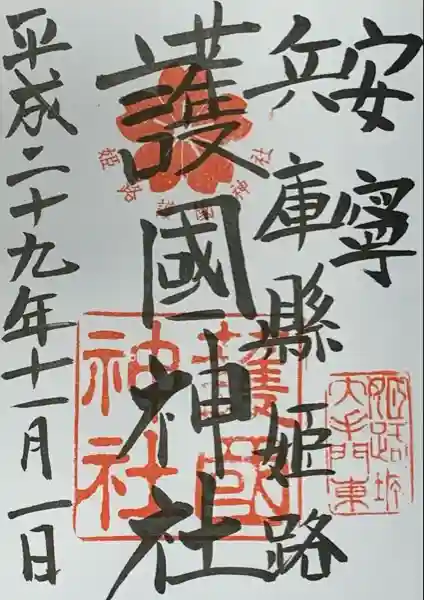 安寧
兵庫縣姫路
護國神社
平成二十九年十一月一日
姫路護國神社
護國
神社
姫路城
大手門東